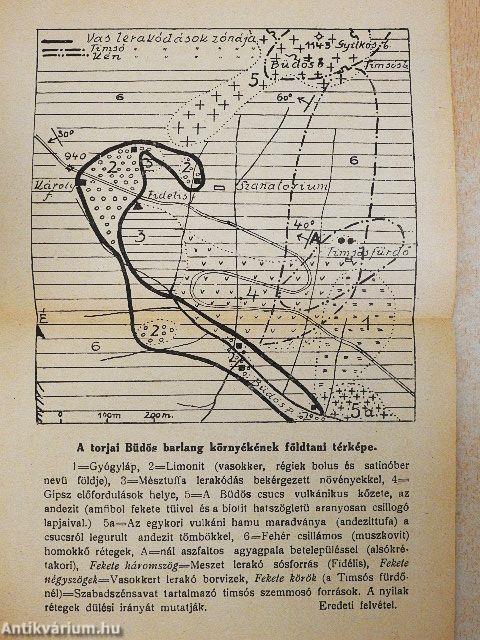 Vas lerakódások zónája
Timsó
Kén
1143
Gyilkos
Büdös
Timsósb.
5
60°
6
6
30°
940
Károly
f.
2
3
2
Fidelis
Szanatorium
3
40°
A
Timsósfürdő
4
1
É
2
6
2
Büdös p.
5a
2
0
100m
200m.
A torjai Büdös barlang környékének földtani térképe.
1=Gyógyláp, 2=Limonit (vasokker, régiek bolus és satinóber
nevü földje), 3=Mésztuffa lerakódás bekérgezett növényekkel, 4=
Gipsz előfordulások helye, 5=A Büdös csucs vulkánikus kőzete, az
andezit (amfibol fekete tüivel és a biotit hatszögletü aranyosan csillogó
lapjaival.) 5a=Az egykori vulkáni hamu maradványa (andezittufa) a
csucsról legurult andezit tömbökkel, 6=Fehér csillámos (muszkovit)
homokkő rétegek, A=nál aszfaltos agyagpala betelepüléssel (alsókré-
takori), Fekete háromszög=Meszet lerakó sósforrás (Fidélis), Fekete
négyszögek=Vasokkert lerakó borvizek, Fekete körök (a Timsós fürdő-
nél)=Szabadszénsavat tartalmazó timsós szemmosó források. A nyilak
rétegek dülési irányát mutatják. Eredeti felvétel.
Antikvárium.hu